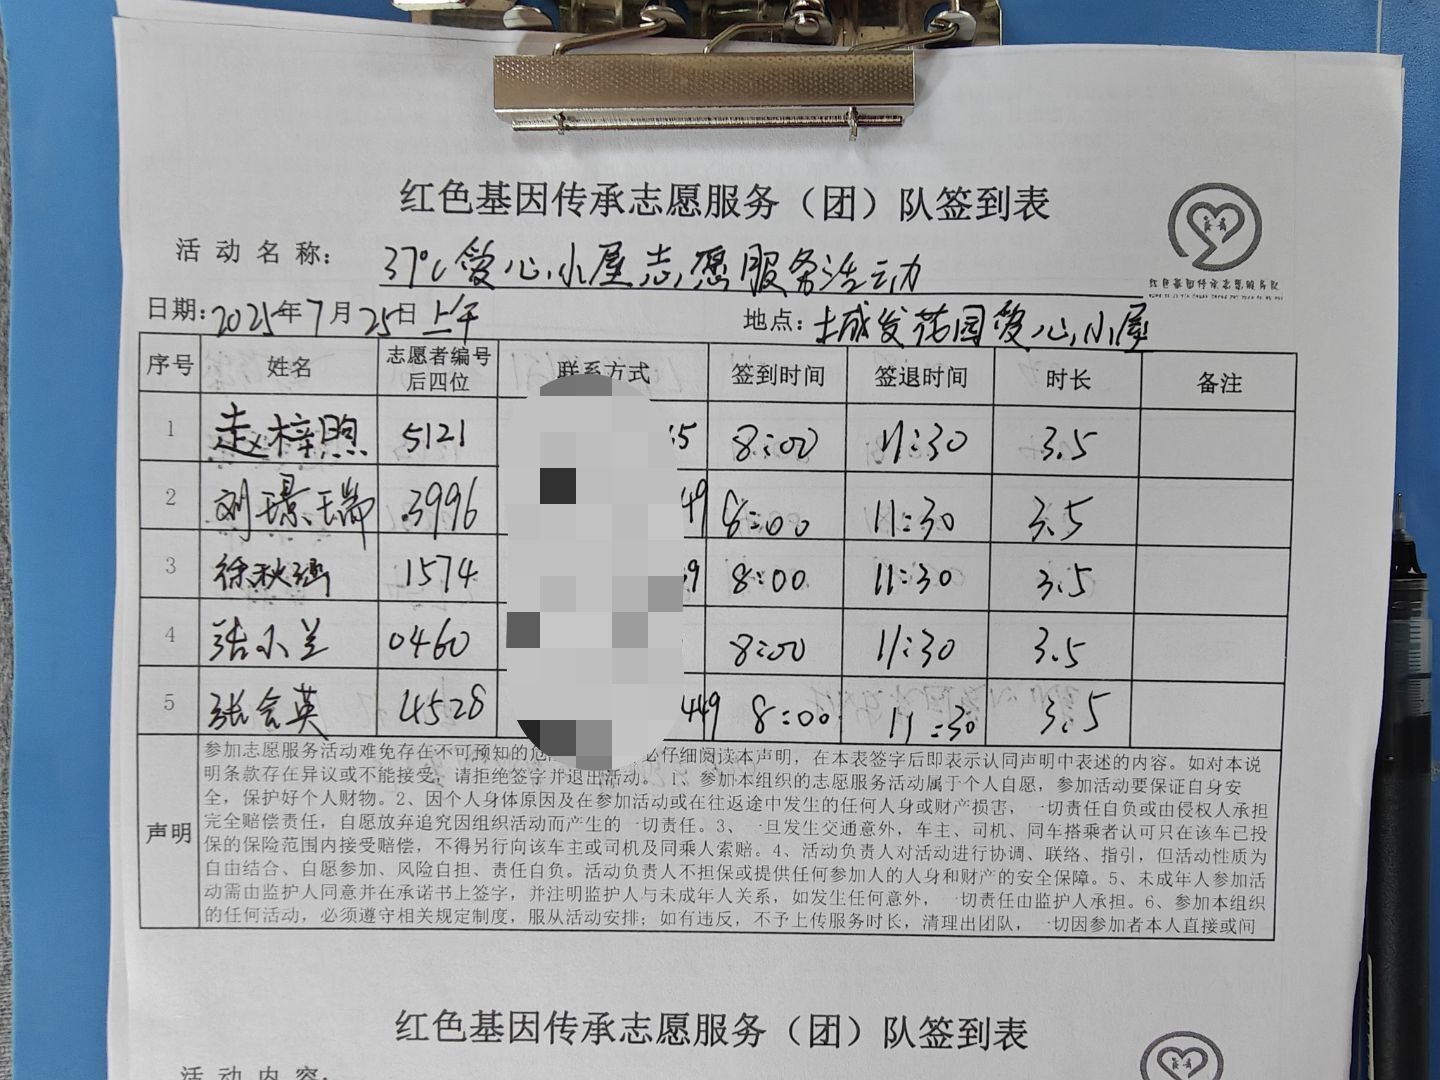 红色基因传承志愿服务（团）队签到表
活动名称： 37℃爱心小屋志愿服务活动
红色基因传承志愿服务队
日期：2025年7月25日上午 地点：土城发花园爱心小屋
序号 姓名 志愿者编号后四位 联系方式 签到时间 签退时间 时长 备注
1 赵梓煦 5121 5 8:00 11:30 3.5
2 刘璟瑞 3996 49 8:00 11:30 3.5
3 徐秋涵 1574 9 8:00 11:30 3.5
4 张小兰 0460 8:00 11:30 3.5
5 张会英 4528 449 8:00 11:30 3.5
声明
参加志愿服务活动难免存在不可预知的危 必仔细阅读本声明，在本表签字后即表示认同声明中表述的内容。如对本说
明条款存在异议或不能接受，请拒绝签字并退出活动。 1、参加本组织的志愿服务活动属于个人自愿，参加活动要保证自身安
全，保护好个人财物。2、因个人身体原因及在参加活动或在往返途中发生的任何人身或财产损害，一切责任自负或由侵权人承担
完全赔偿责任，自愿放弃追究因组织活动而产生的一切责任。3、一旦发生交通意外，车主、司机、同车搭乘者认可只在该车已投
保的保险范围内接受赔偿，不得另行向该车主或司机及同乘人索赔。4、活动负责人对活动进行协调、联络、指引，但活动性质为
自由结合、自愿参加、风险自担、责任自负。活动负责人不担保或提供任何参加人的人身和财产的安全保障。5、未成年人参加活
动需由监护人同意并在承诺书上签字，并注明监护人与未成年人关系，如发生任何意外，一切责任由监护人承担。6、参加本组织
的任何活动，必须遵守相关规定制度，服从活动安排；如有违反，不予上传服务时长，清理出团队，一切因参加者本人直接或间
红色基因传承志愿服务（团）队签到表
活动内容：